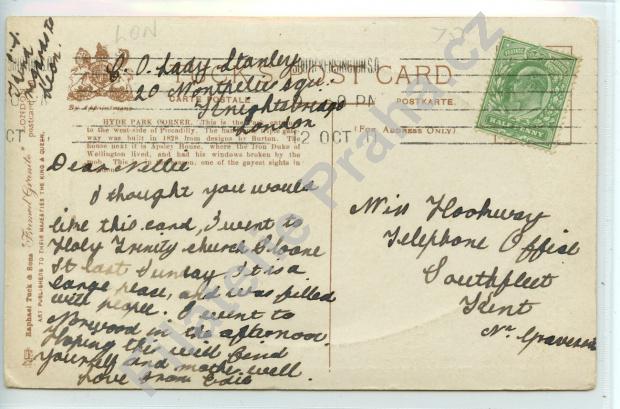 LON
C. O. Lady Stanley
20 Montpelier Squ.
Knightsbridge
London
TUCK'S POST CARD
CARTE POSTALE
POSTKARTE.
By Appointment
(FOR ADDRESS ONLY)
2 OCT 11
POSTAGE
HALFPENNY
HYDE PARK CORNER. This is the
to the west-side of Piccadilly. The
way was built in 1828 from designs by Burton. The
house next it is Apsley House, where the Iron Duke of
Wellington lived, and had his windows broken by the
mob. This is, in the season, one of the gayest sights in
Kind
regards to
Dear Nellie
I thought you would
like this card, I went to
Holy Trinity church Sloane
St last Sunday. It is a
large place, and was filled
with people. I went to
Norwood in the afternoon.
Hoping this will find
yourself and mother well.
Love from Edie
Miss Hookway
Telephone Office
Southfleet
Kent
Nr. Gravesend
Raphael Tuck & Sons
ART PUBLISHERS TO THEIR MAJESTIES THE KING & QUEEN.
Filatelie Praha.cz